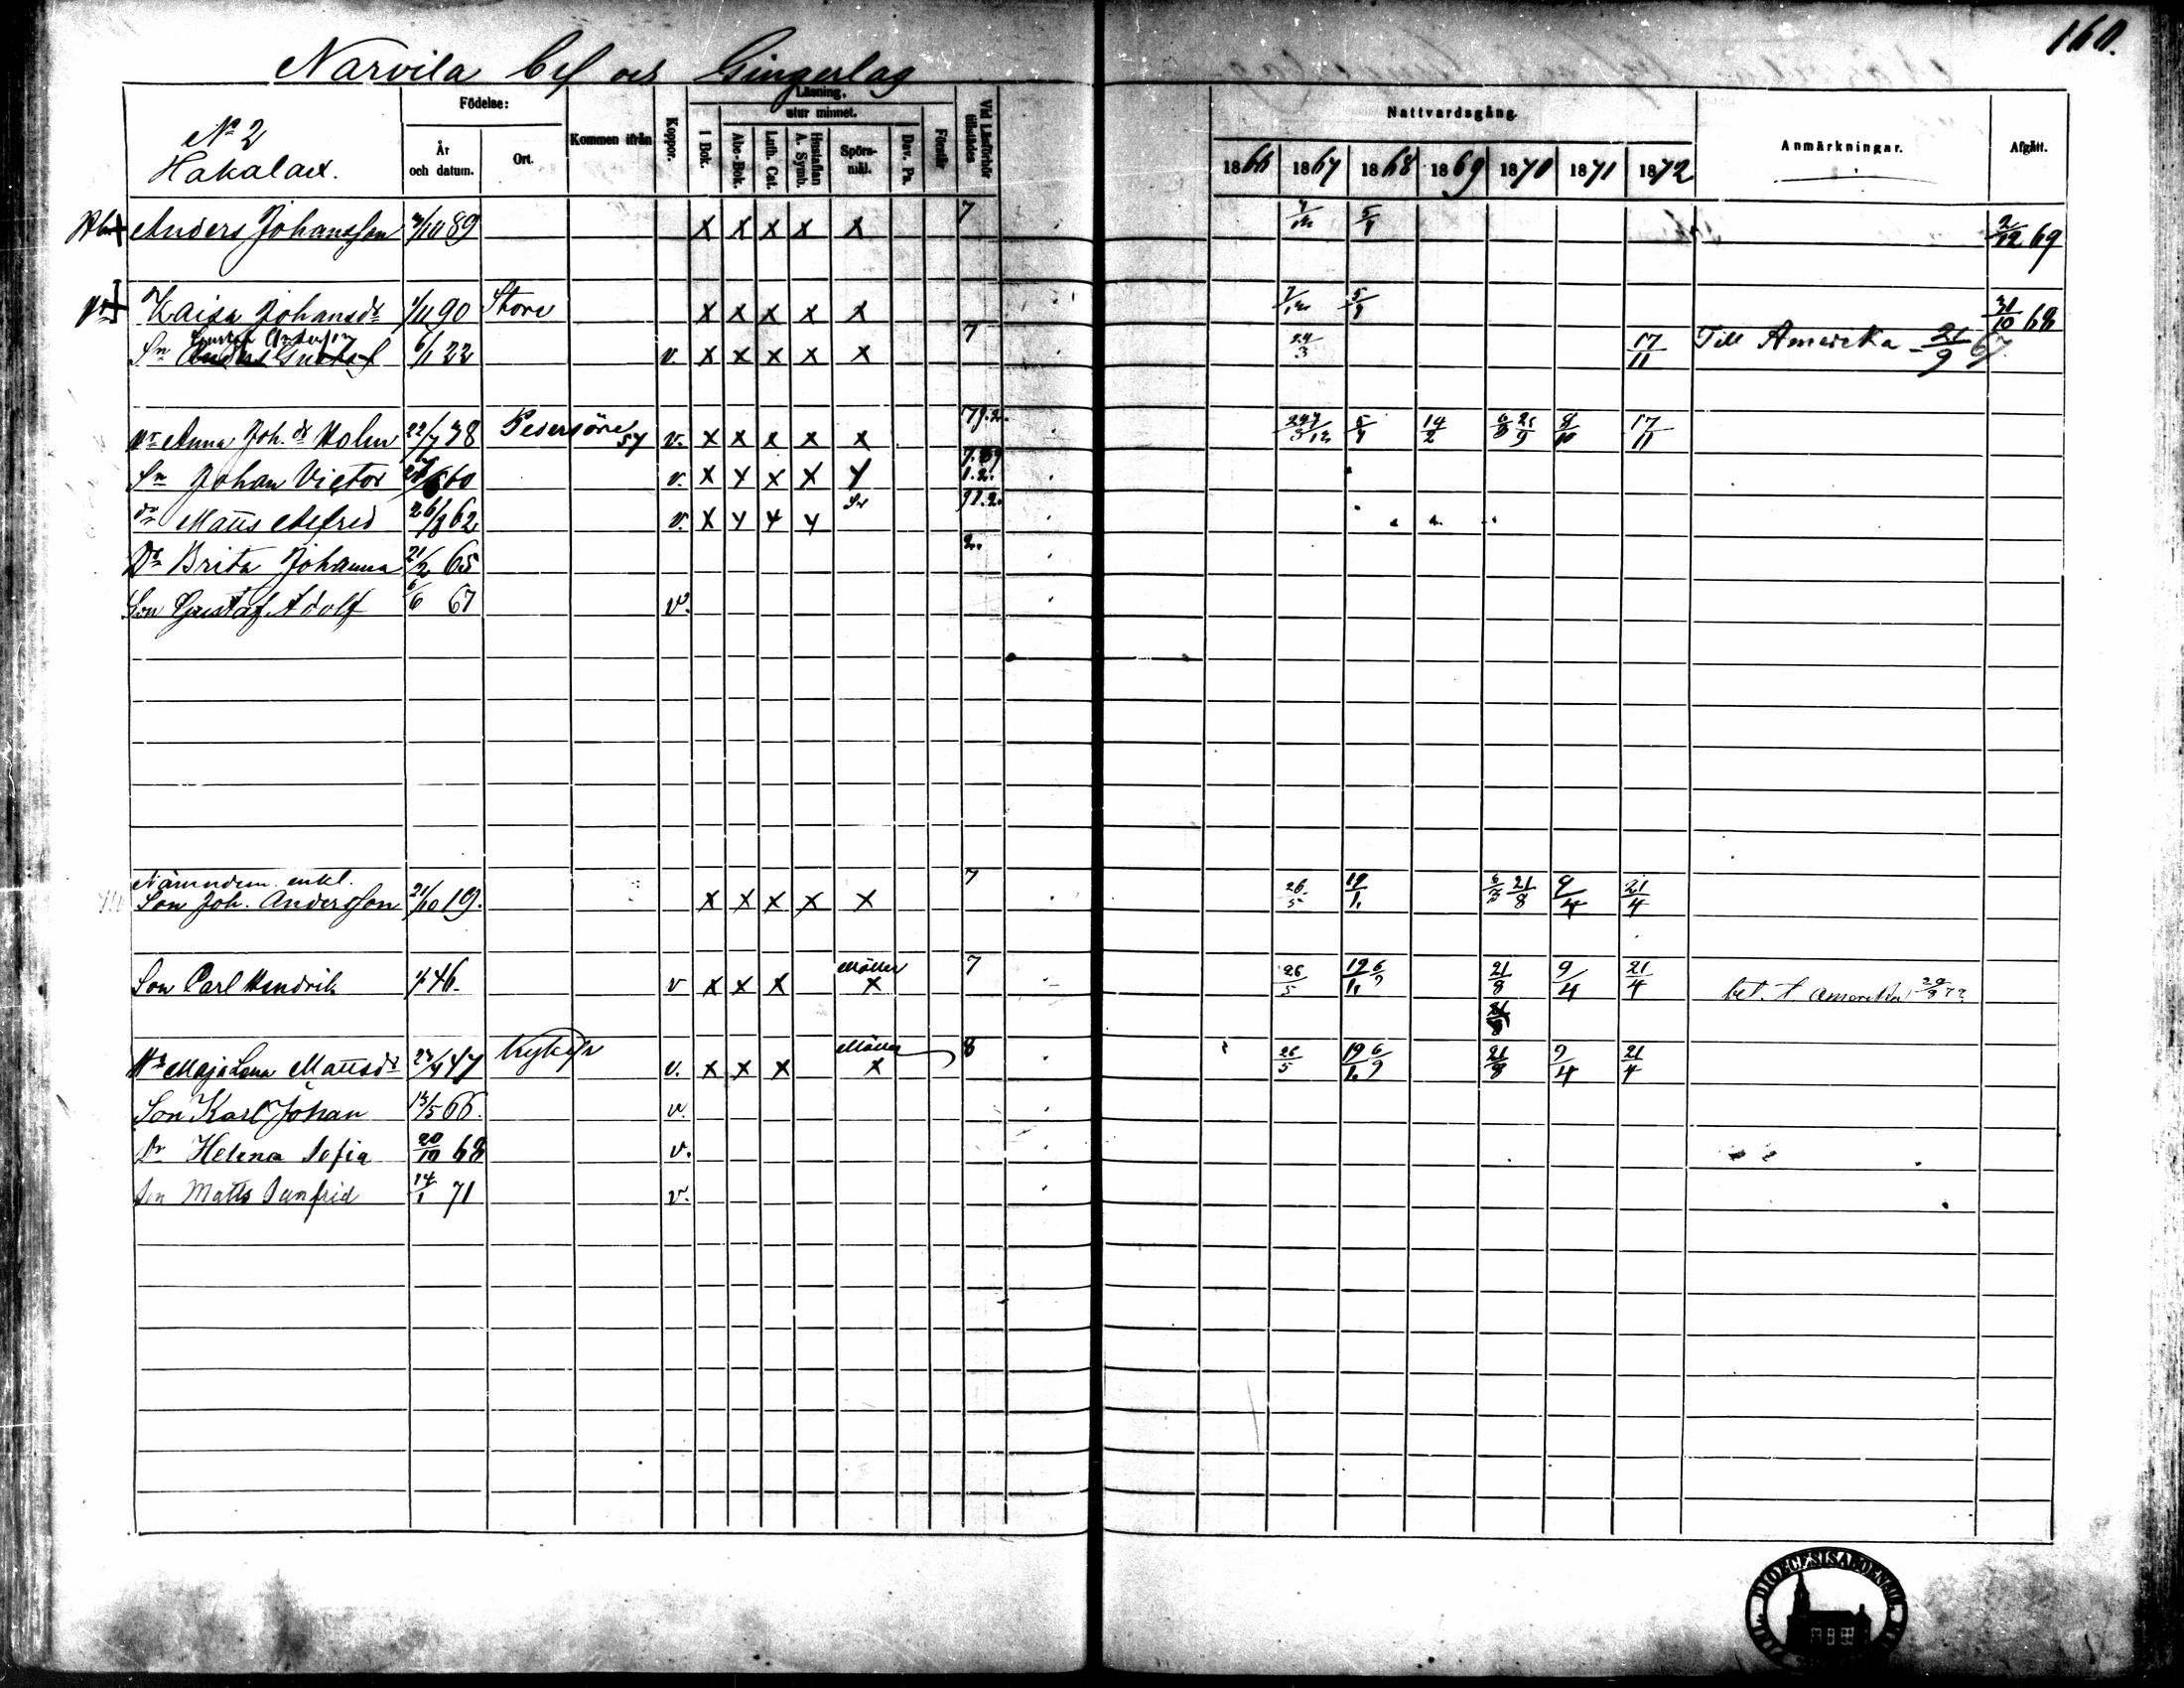 160.
Narvila by och Gingerlag
No 2
Hakalax.
Födelse:
År och datum.
Ort.
Kommen ifrån
Koppor.
Läsning,
I Bok.
utur minnet.
Abc-Bok.
Luth. Cat.
Hustaflan A. Symb.
Spörs-mål.
Dav. Ps.
Förstår
Vid Läsförhör tillstädes
Nattvardsgång.
1866 1867 1868 1869 1870 1871 1872
Anmärkningar.
Afgått.
Anders Johansson 89 x x x x x 7 5/4 2/12 69
Kaisa Johansdr 1/11 90 Stora x x x x x 7/12 5/4 31/10 68
Sn Anders Gustaf Gustaf Andersson 6/1 22 v. x x x x x 7 24/3 17/11 Till Amerika - 21/9 67.
Anna Joh. dr Holm 22/7 38 Pedersöre 57 v. x x x x x 79.2. 14/2 8/10 17/11
Sn Johan Victor 60 v. x x x x x 1.2.
Matts Alfred 26/8 62 v. x x x x 91.2.
Dr Brita Johanna 21/2 65 2.
Son Gustaf Adolf 6/6 67 v.
Nämndem. enkl.
Son Joh. Andersson 21/10 19. x x x x x 7 26/5 19/1. 21/8 9/4 21/4
Son Carl Hendrik 46. v x x x Möller x 7 26/5 19/1. 6/9 21/8 9/4 21/4 bet. t. Amerika
Maja Lena Mattsdr 47 v. x x x Möller x 8 26/5 19/1. 6/9 21/8 9/4 21/4
Son Karl Johan 13/5 66. v.
Dr Helena Sofia 20/10 68 v.
Son Matts Sanfrid 14/1 71 v.